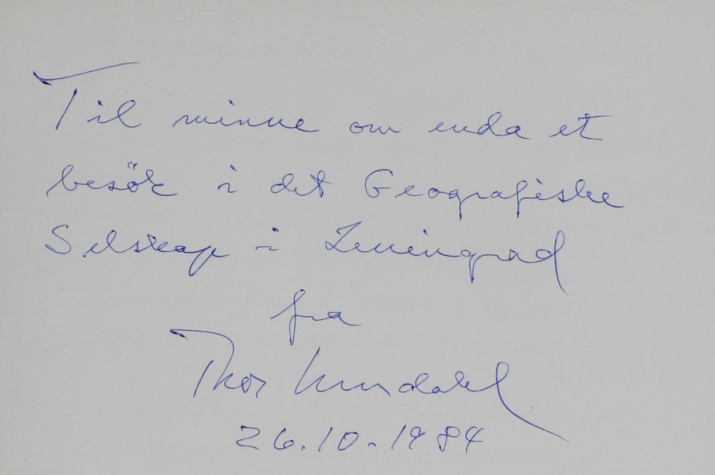 Til minne om enda et
besök i det Geografiske
Selskap i Leningrad
fra
Thor
26.10.1984